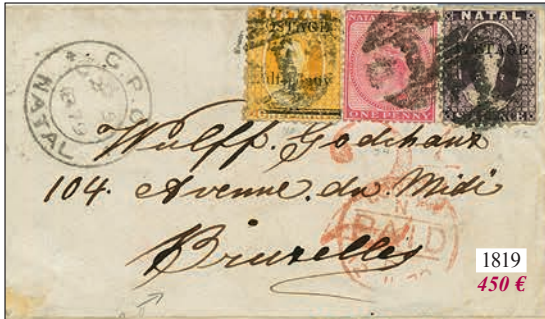 POSTAGE
Half-penny
NATAL
ONE PENNY
NATAL
POSTAGE
SIXPENCE
G.P.O.
NATAL
Wulff. Godchaux
104. Avenue du Midi
Bruxelles
PAID
1819
450 €